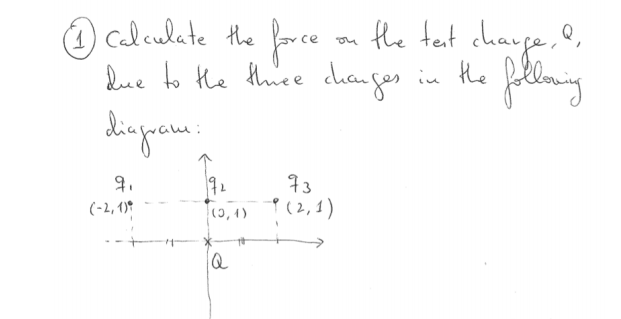 ① Calculate the force on the test charge, Q,
due to the three charges in the following
diagram:
q1 q2 q3
(-2, 1) (0, 1) (2, 1)
Q